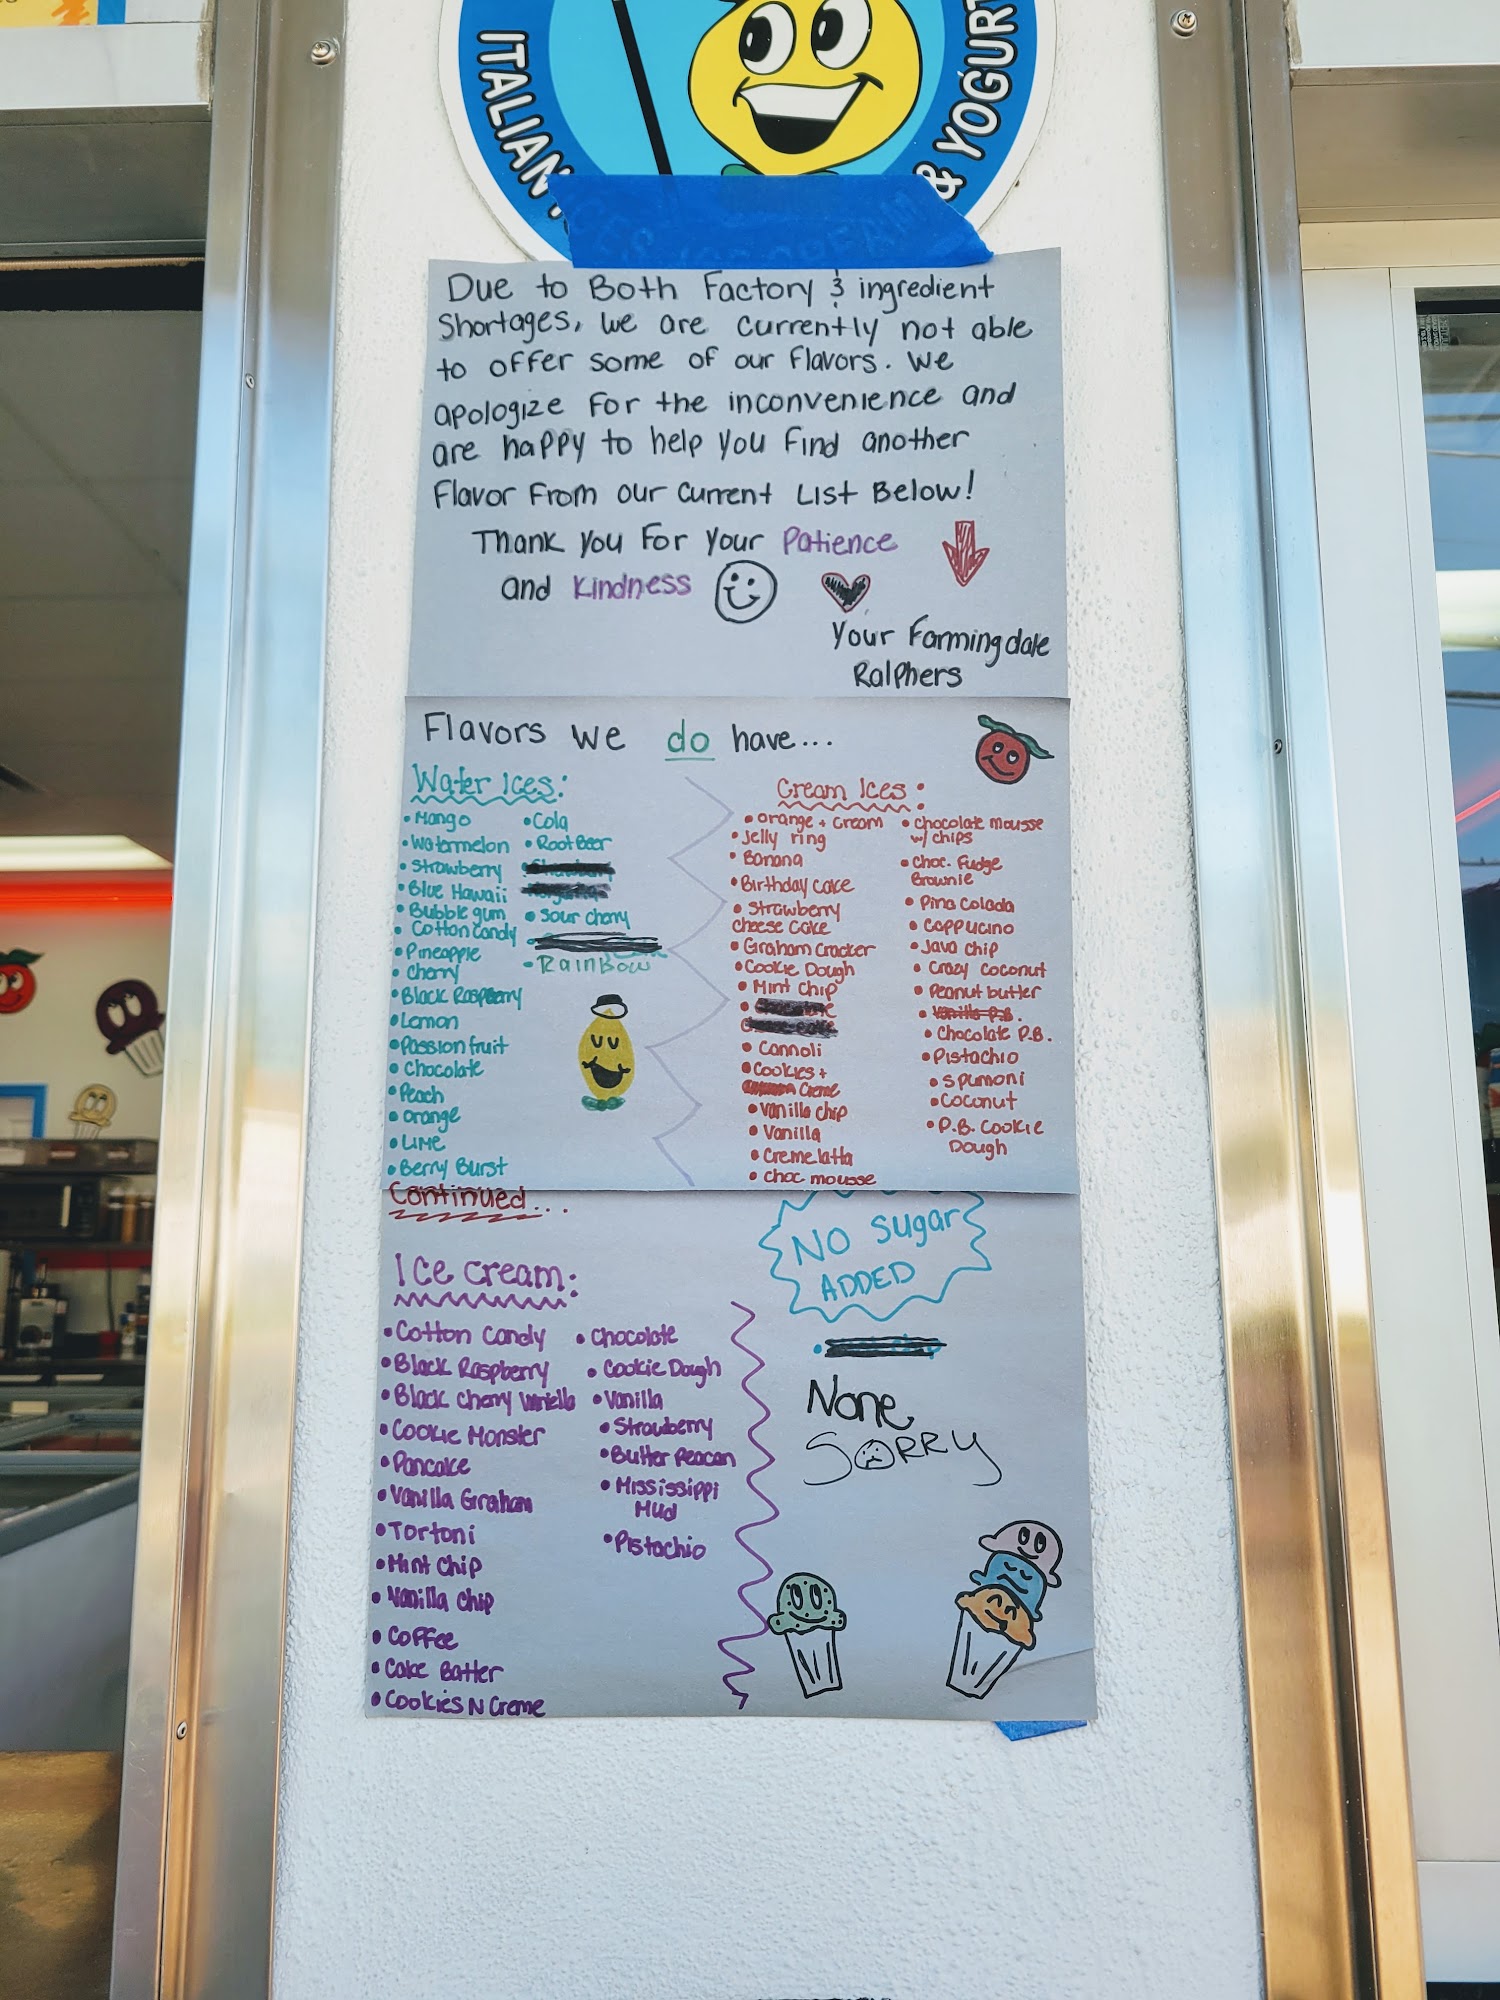 ITALIAN
& YOGURT
Due to Both Factory & ingredient
Shortages, we are currently not able
to offer some of our flavors. We
apologize for the inconvenience and
are happy to help you find another
Flavor From our current List Below!
Thank you For your Patience
and Kindness
Your Farmingdale
Ralphers
Flavors we do have...
Water Ices:
• Mango
• Watermelon
• Strawberry
• Blue Hawaii
• Bubble gum
• Cotton Candy
• Pineapple
• Cherry
• Black Raspberry
• Lemon
• Passion fruit
• Chocolate
• Peach
• Orange
• Lime
• Berry Burst
• Cola
• Root Beer
• Sour cherry
- RainBow
Cream Ices:
• Orange + Cream
• Jelly ring
• Banana
• Birthday cake
• Strawberry
cheese cake
• Graham Cracker
• Cookie Dough
• Mint Chip
• Cannoli
• Cookies +
Creme
• Vanilla chip
• Vanilla
• Cremelatta
• Choc mousse
• Chocolate mousse
w/ chips
• Choc. Fudge
Brownie
• Pina Colada
• Cappucino
• Java chip
• Crazy Coconut
• Peanut butter
• Vanilla P.B.
• Chocolate P.B.
• Pistachio
• Spumoni
• Coconut
• P.B. Cookie
Dough
Continued...
Ice cream:
• Cotton Candy
• Black Raspberry
• Black Cherry Vanilla
• Cookie Monster
• Pancake
• Vanilla Graham
• Tortoni
• Mint Chip
• Vanilla Chip
• Coffee
• Cake Batter
• Cookies N Creme
• Chocolate
• Cookie Dough
• Vanilla
• Strawberry
• Butter Peacan
• Mississippi
Mud
• Pistachio
No Sugar
ADDED
None
SORRY